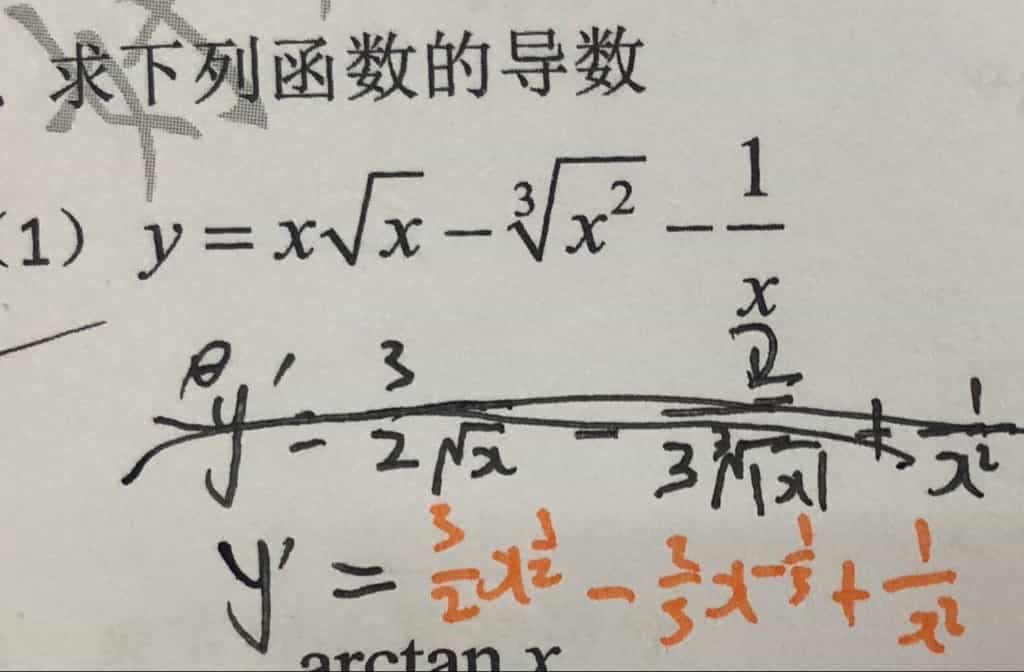 求下列函数的导数
(1) y = x√x − ∛x² − 1/x
y' = 3/(2√x) − 2/(3∛|x|) + 1/x²
y' = 3/2 x^(1/2) − 2/3 x^(−1/3) + 1/x²
arctan x